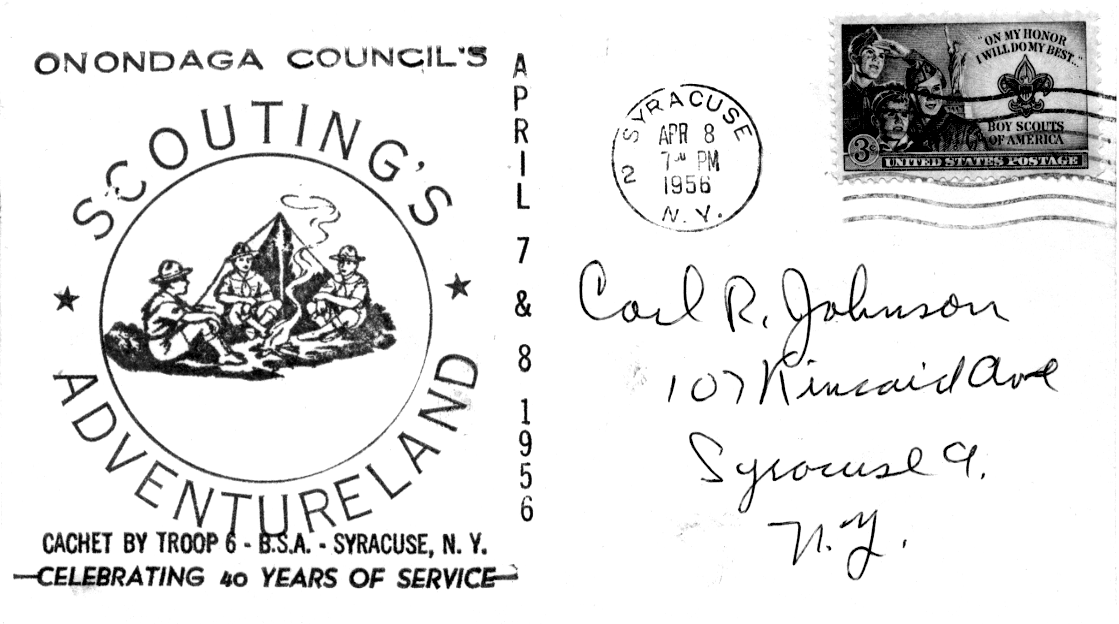 ONONDAGA COUNCIL'S
SCOUTING'S
ADVENTURELAND
CACHET BY TROOP 6 - B.S.A. - SYRACUSE, N. Y.
CELEBRATING 40 YEARS OF SERVICE
APRIL 7 & 8 1956
SYRACUSE
APR 8
7 PM
1956
2
N. Y.
"ON MY HONOR
I WILL DO MY BEST..."
BOY SCOUTS
OF AMERICA
3¢
UNITED STATES POSTAGE
Carl R. Johnson
107 Kincaid Ave
Syracuse 9.
N.Y.